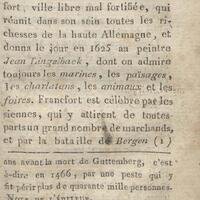 fort, ville libre mal fortifiée, qui
réunit dans son sein toutes les ri-
chesses de la haute Allemagne, et
donna le jour en 1625 au peintre
Jean Lingelback, dont on admire
toujours les marines, les paisages,
les charlatans, les animaux et les
foires. Francfort est célèbre par les
siennes, qui y attirent de toutes
parts un grand nombre de marchands,
et par la bataille de Bergen (1)
ans avant la mort de Guttemberg, c'est
à-dire en 1466, par une peste qui y
fit périr plus de quarante mille personnes.
NOTE DE L'ÉDITEUR.